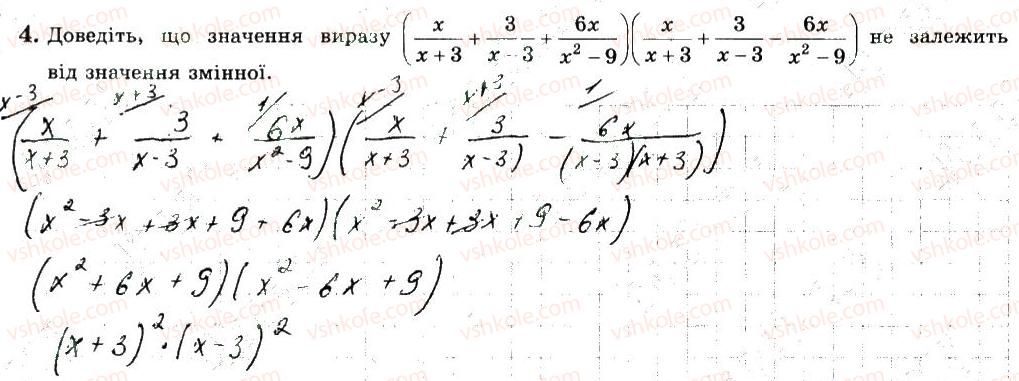 4. Доведіть, що значення виразу (x/(x+3) + 3/(x-3) + 6x/(x²-9))(x/(x+3) + 3/(x-3) - 6x/(x²-9)) не залежить
від значення змінної.
x-3 x+3 1 x-3 x+3 1
(x/(x+3) + 3/(x-3) + 6x/(x²-9))(x/(x+3) + 3/(x-3) - 6x/((x-3)(x+3)))
(x²-3x+3x+9+6x)(x²-3x+3x+9-6x)
(x²+6x+9)(x²-6x+9)
(x+3)²·(x-3)²
vshkole.com